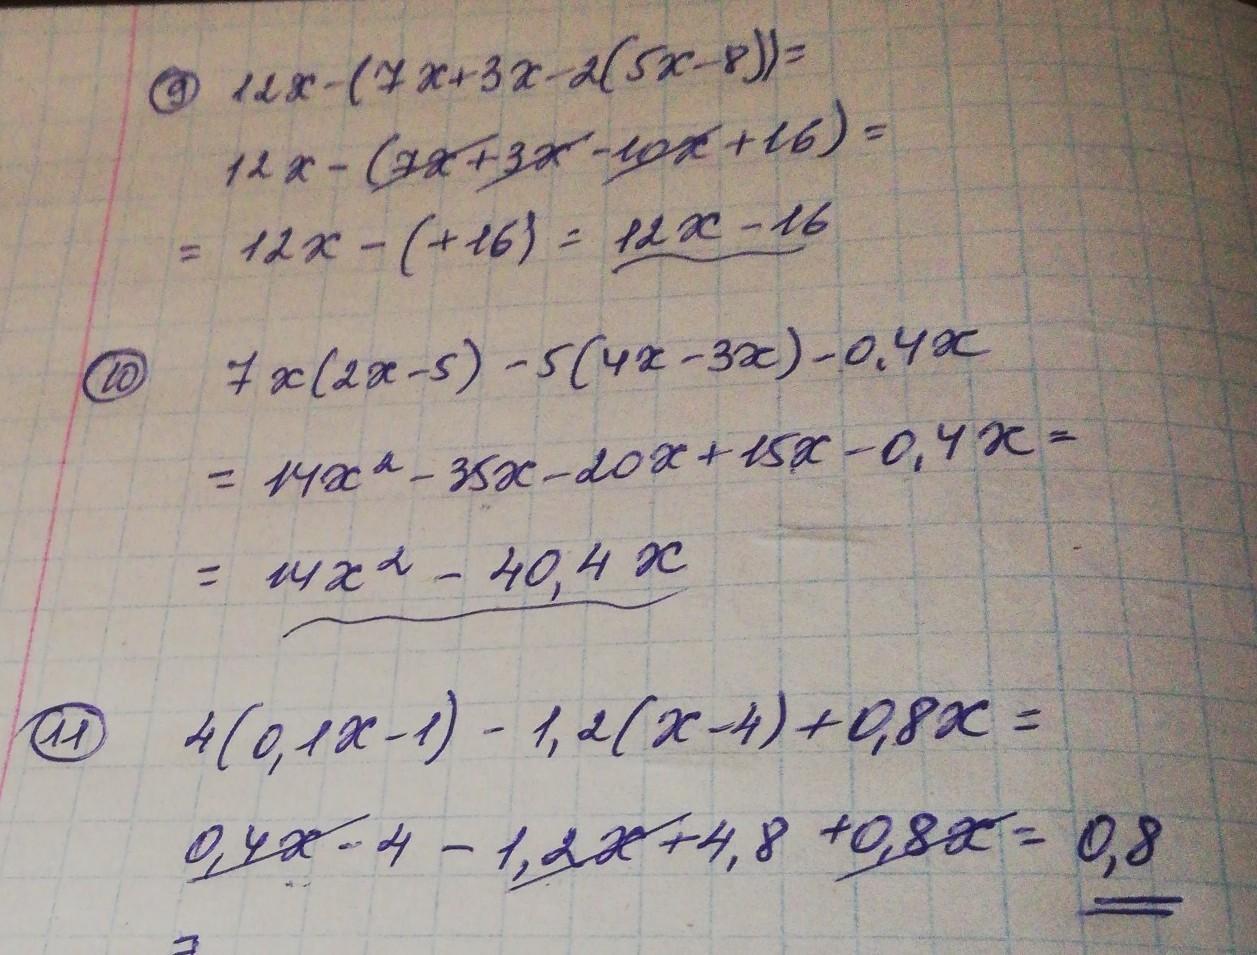 9 12x-(7x+3x-2(5x-8))=
12x-(7x+3x-10x+16)=
= 12x-(+16) = 12x-16
10 7x(2x-5)-5(4x-3x)-0.4x
= 14x²-35x-20x+15x-0,4x=
= 14x²-40,4x
11 4(0,1x-1)-1,2(x-4)+0,8x=
0,4x-4-1,2x+4,8+0,8x=0,8
=